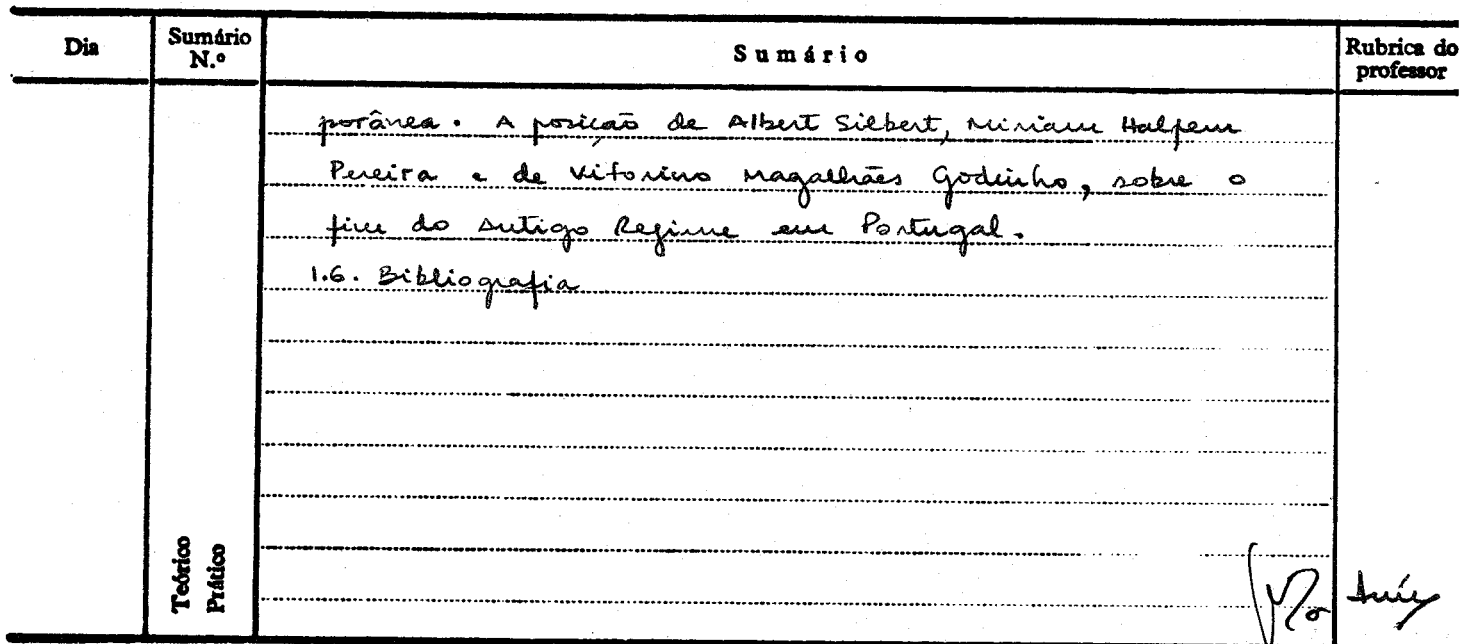 Dia
Sumário N.º
Sumário
Rubrica do professor
porânea. A posição de Albert Silbert, Miriam Halpern
Pereira e de Vitorino Magalhães Godinho, sobre o
fim do Antigo Regime em Portugal.
1.6. Bibliografia
Teórico
Prático